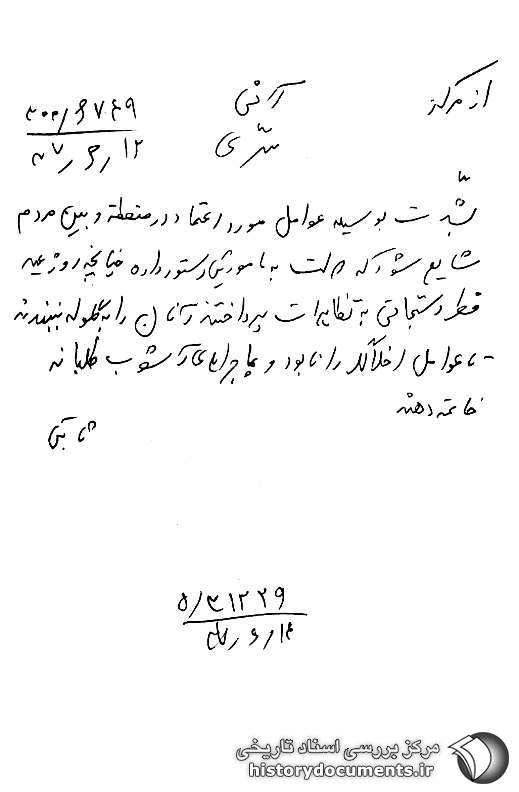 از مرکز آنی ۳۰۰/۶۷۴۹
سّری ۱۲/۶/۵۷
بشّدت بوسیله عوامل مورد اعتماد در منطقه و بین مردم
شایع شود که دولت به مامورین دستور داده چنانچه روز عید
فطر دستجاتی به تظاهرات پرداختند آنان را به گلوله ببندند
تا عوامل اخلالگر را نابود و بماجراهای آشوب طلبانه
خاتمه دهند
ثابتی
۵/۳۱۲۲۹
مرکز بررسی اسناد تاریخی
historydocuments.ir